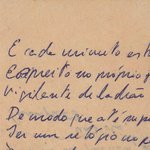 E cada minuto est
no próprio
vigilante de ladrão
De modo que até
Ser um relógio no p